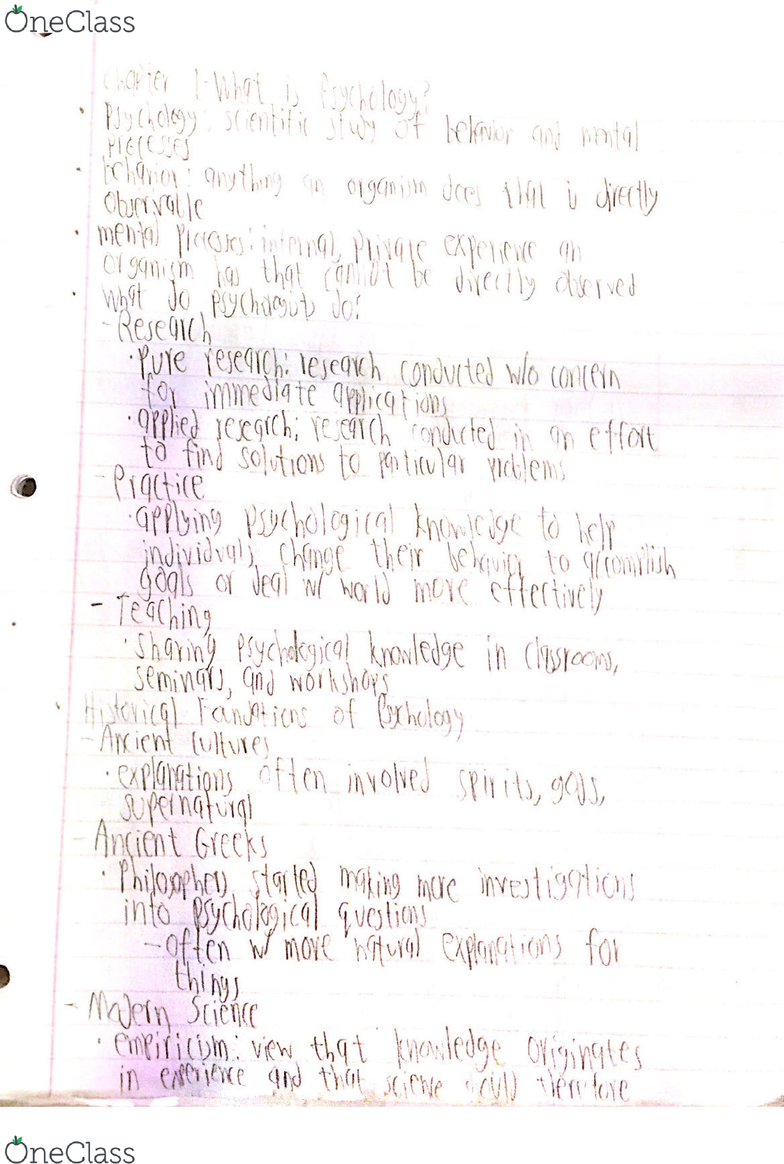 OneClass
Chapter 1-What is Psychology?
• Psychology: scientific study of behavior and mental
processes
• behavior: anything an organism does that is directly
observable
• mental processes: internal, private experience an
organism has that cannot be directly observed
• what do psychologists do?
- Research
• pure research: research conducted w/o concern
for immediate applications
• applied research: research conducted in an effort
to find solutions to particular problems
- Practice
• applying psychological knowledge to help
individuals change their behavior to accomplish
goals or deal w/ world more effectively
- Teaching
• sharing psychological knowledge in classrooms,
seminars, and workshops
• Historical Foundations of Psychology
- Ancient Cultures
• explanations often involved spirits, gods,
supernatural
- Ancient Greeks
• Philosophers started making more investigations
into psychological questions
- often w/ more natural explanations for
things
- Modern Science
• empiricism: view that knowledge originates
in experience and that science should therefore
OneClass